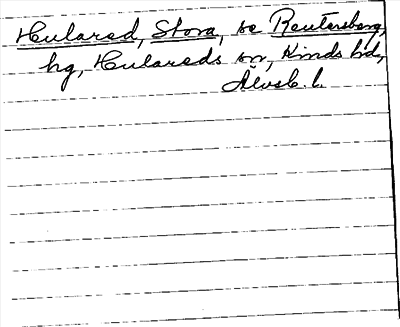 Hulared, Stora, se Reutersberg,
hg, Hulareds sn, Kinds hd,
Älvsb. l.